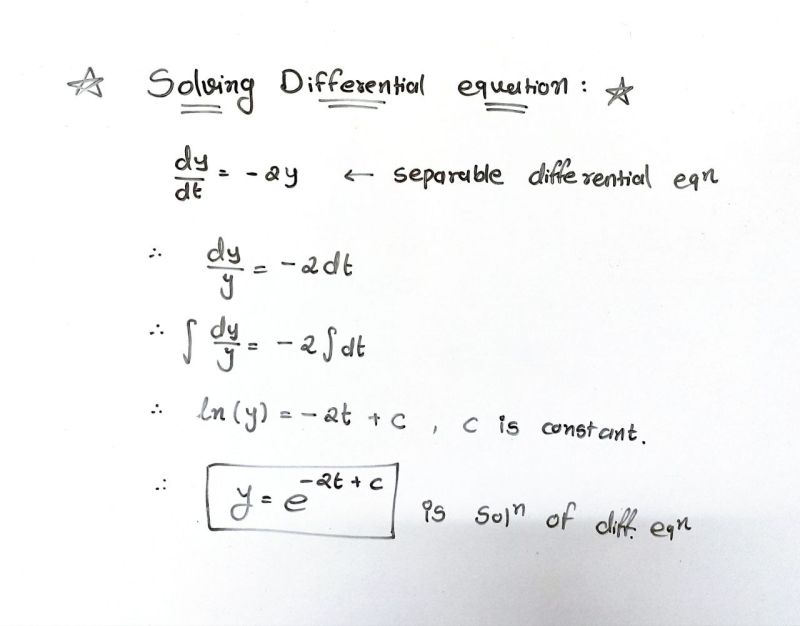 ☆ Solving Differential equation : ☆
dy/dt = -2y ← separable differential eqn
∴ dy/y = -2dt
∴ ∫ dy/y = -2∫dt
∴ ln(y) = -2t + c , c is constant.
∴ y = e^(-2t + c) is solⁿ of diff. eqn